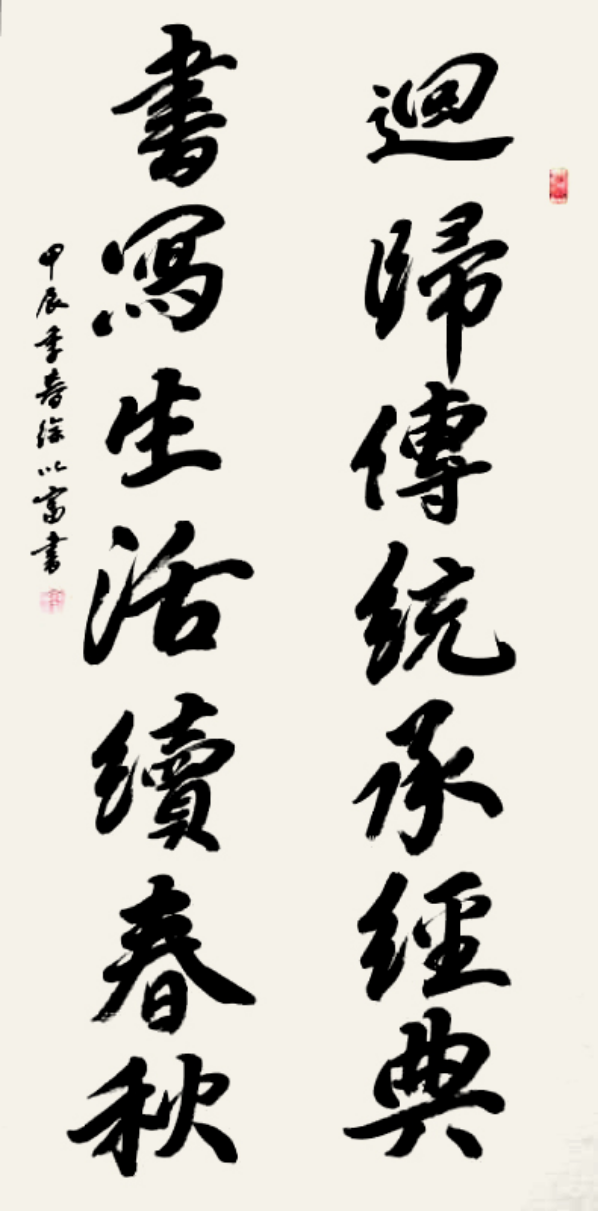 迴歸傳統承經典
書寫生活續春秋
甲辰季春徐以富書